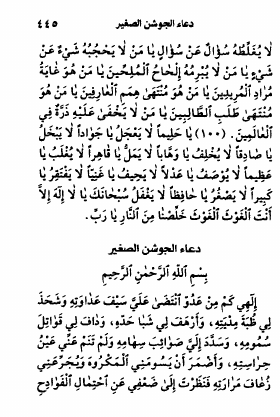 دعاء الجوشن الصغير ٤٤٥
لَا يُغَلِّطُهُ سُؤَالٌ عَنْ سُؤَالٍ يَا مَنْ لَا يَحْجُبُهُ شَيْءٌ عَنْ
شَيْءٍ يَا مَنْ لَا يُبْرِمُهُ إِلْحَاحُ الْمُلِحِّينَ يَا مَنْ هُوَ غَايَةُ
مُرَادِ الْمُرِيدِينَ يَا مَنْ هُوَ مُنْتَهَى هِمَمِ الْعَارِفِينَ يَا مَنْ هُوَ
مُنْتَهَى طَلَبِ الطَّالِبِينَ يَا مَنْ لَا يَخْفَى عَلَيْهِ ذَرَّةٌ فِي
الْعَالَمِينَ. (١٠٠) يَا حَلِيماً لَا يَعْجَلُ يَا جَوَاداً لَا يَبْخَلُ
يَا صَادِقاً لَا يُخْلِفُ يَا وَهَّاباً لَا يَمَلُّ يَا قَاهِراً لَا يُغْلَبُ يَا
عَظِيماً لَا يُوصَفُ يَا عَدْلاً لَا يَحِيفُ يَا غَنِيّاً لَا يَفْتَقِرُ يَا
كَبِيراً لَا يَصْغُرُ يَا حَافِظاً لَا يَغْفَلُ سُبْحَانَكَ يَا لَا إِلَهَ إِلاَّ
أَنْتَ الْغَوْثَ الْغَوْثَ خَلِّصْنَا مِنَ النَّارِ يَا رَبِّ.
دعاء الجوشن الصغير
بِسْمِ اللهِ الرَّحْمٰنِ الرَّحِيمِ
إِلٰهِي كَمْ مِنْ عَدُوٍّ انْتَضَى عَلَيَّ سَيْفَ عَدَاوَتِهِ وَشَحَذَ
لِي ظُبَةَ مُدْيَتِهِ، وَأَرْهَفَ لِي شَبَا حَدِّهِ، وَدَافَ لِي قَوَاتِلَ
سُمُومِهِ، وَسَدَّدَ إِلَيَّ صَوَائِبَ سِهَامِهِ وَلَمْ تَنَمْ عَنِّي عَيْنُ
حِرَاسَتِهِ، وَأَضْمَرَ أَنْ يَسُومَنِي الْمَكْرُوهَ وَيُجَرِّعَنِي
زُعَافَ مَرَارَتِهِ فَنَظَرْتَ إِلَى ضَعْفِي عَنِ احْتِمَالِ الْفَوَادِحِ